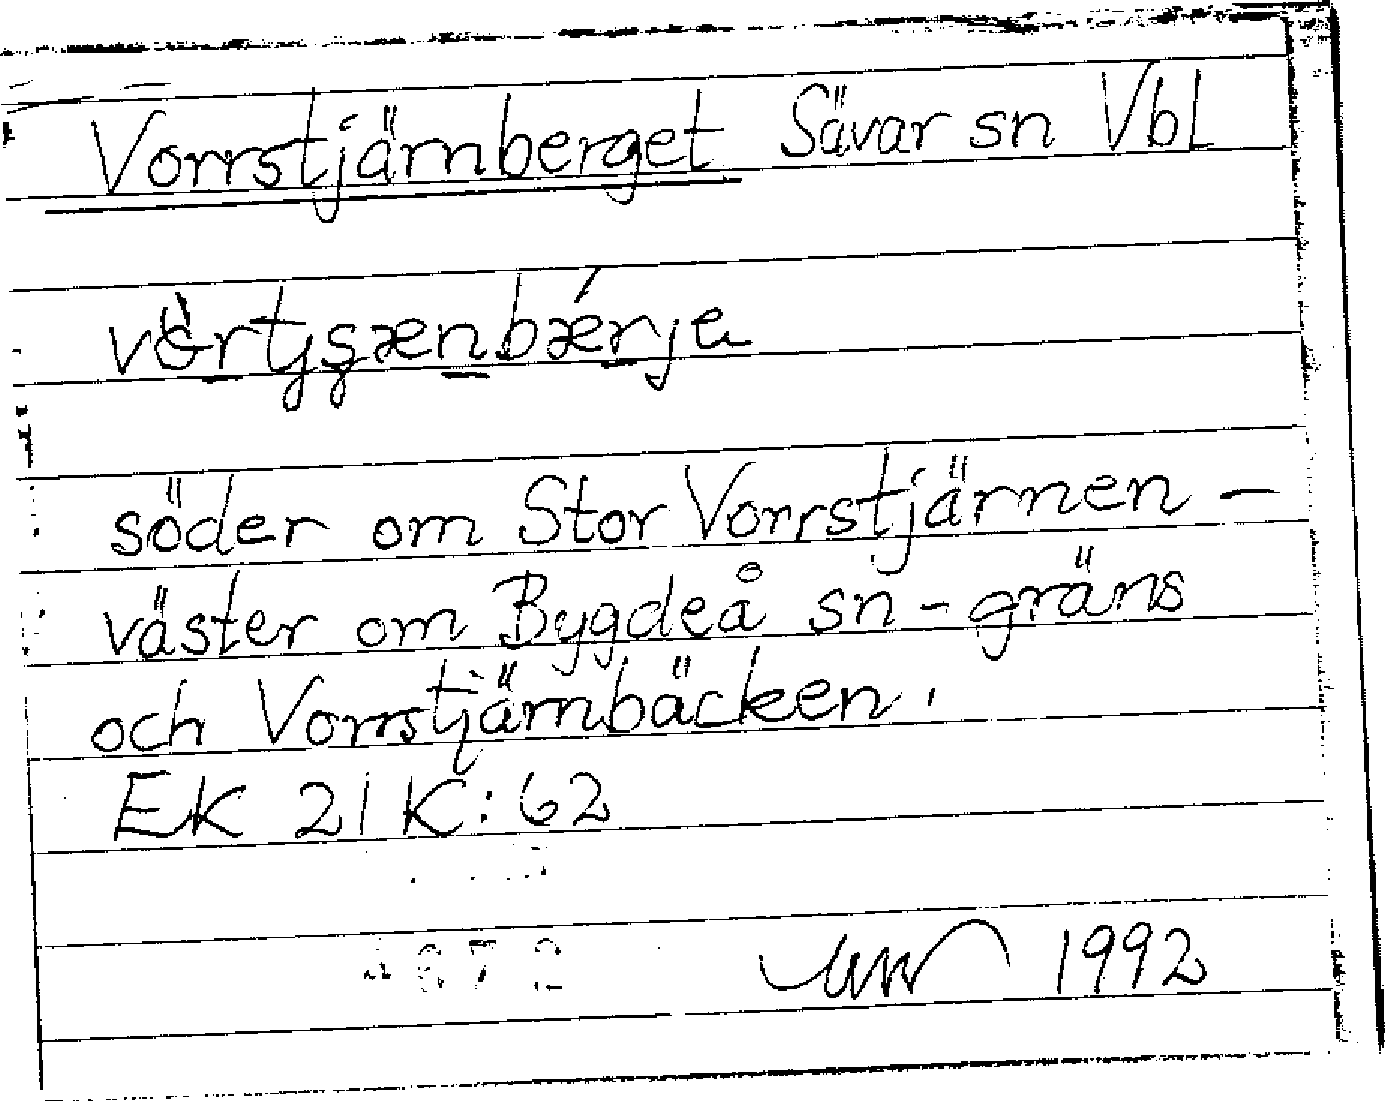 Vorrstjärnberget Sävar sn Vbl
söder om Stor Vorrstjärnen -
väster om Bygdeå sn-gräns
och Vorrstjärnbäcken.
EK 21 K: 62
1992